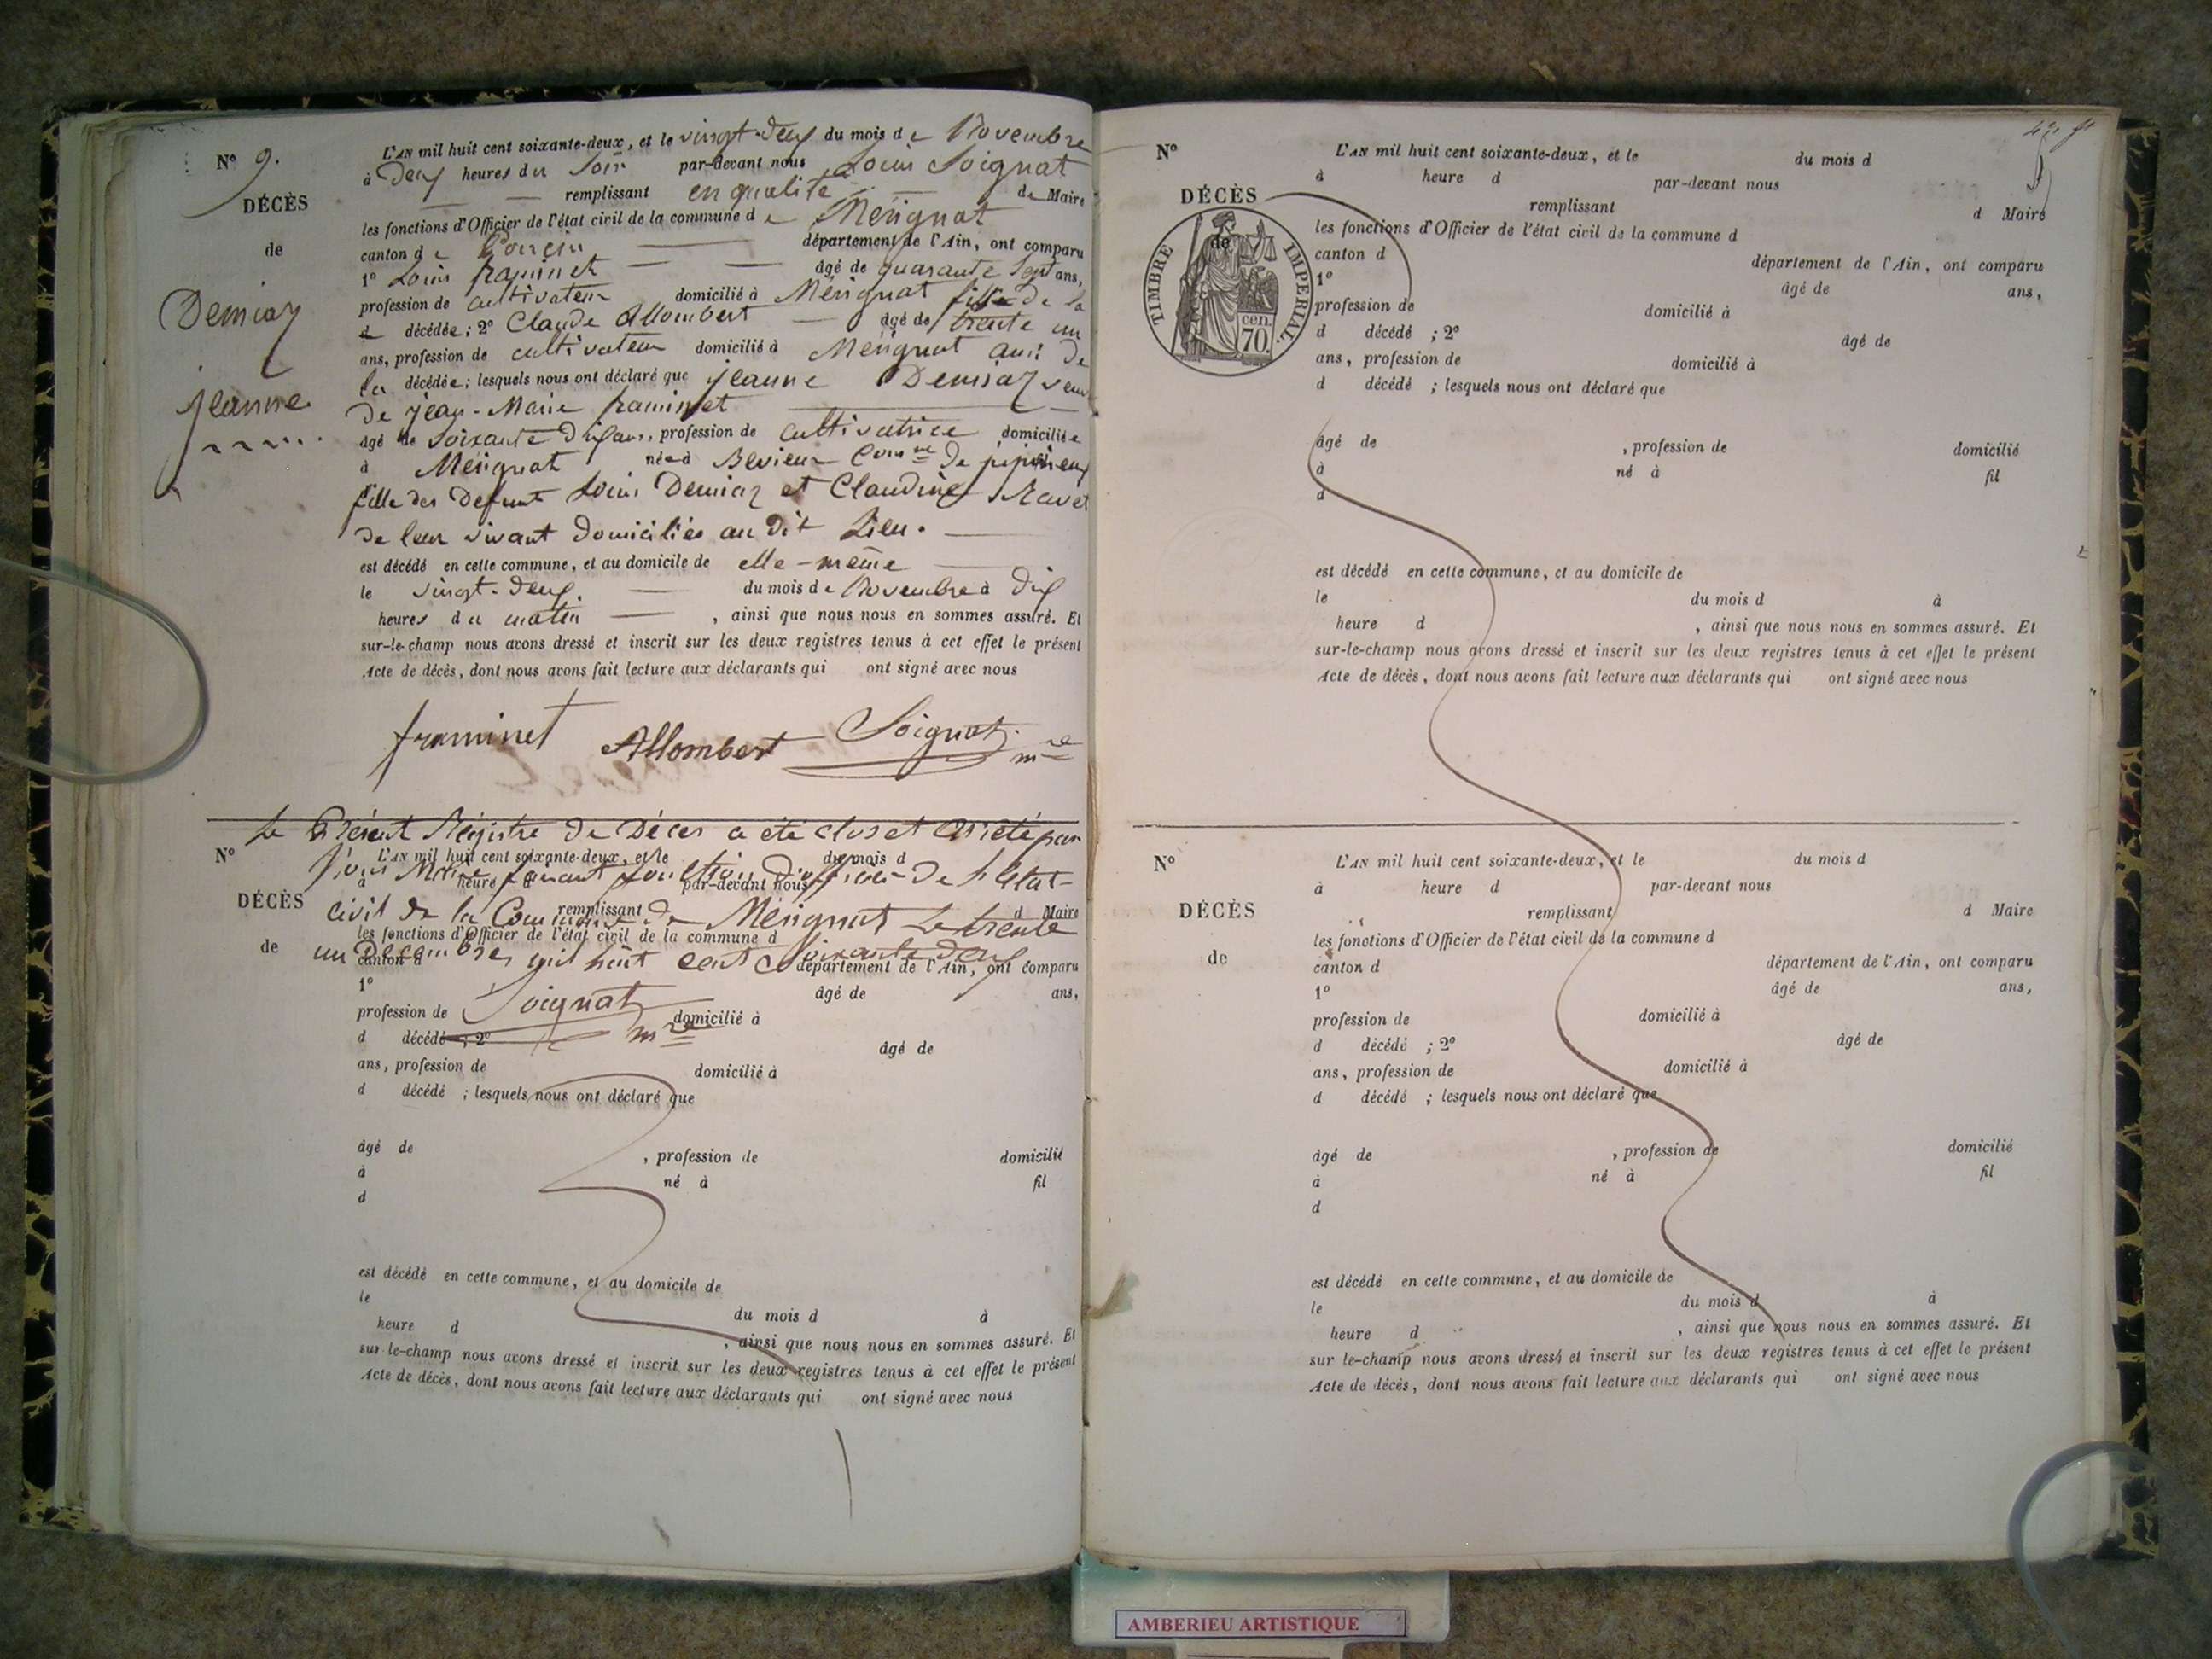 N° 9.
DÉCÈS
de
Demiaz
Jeanne
L'AN mil huit cent soixante-deux, et le vingt-deux du mois de Novembre
à Deux heures du Soir par-devant nous Louis Soignat
remplissant en qualité de Maire
les fonctions d'Officier de l'état civil de la commune de Mérignat
canton de Poncin département de l'Ain, ont comparu
1° Louis framinet âgé de quarante Sept ans,
profession de cultivateur domicilié à Mérignat fils de la
d décédée; 2° Claude Allombert âgé de trente un
ans, profession de cultivateur domicilié à Mérignat ami de
la décédée; lesquels nous ont déclaré que Jeanne Demiaz veuve
de jean-Marie framinet
âgé de Soixante Dix ans, profession de cultivatrice domiciliée
à Mérignat née à Bevieux Comne de
fille des Defunt Louis Demiaz et Claudine Ravet
de leur vivant Domiciliés au Dit Lieu.
est décédé en cette commune, et au domicile de elle-même
le vingt-Deux du mois de Novembre à Dix
heures du matin, ainsi que nous nous en sommes assuré. Et
sur-le-champ nous avons dressé et inscrit sur les deux registres tenus à cet effet le présent
Acte de décès, dont nous avons fait lecture aux déclarants qui ont signé avec nous
framinet Allombert Soignat mre
Le Présent Régistre de Décès a été clos et arrêté par
Nous Maire faisant fonction d'officier de l'Etat-
civil de la Commune de Mérignat Le trente
un Décembre mil huit cent Soixante Deux
Soignat
mre
N°
DÉCÈS
de
L'AN mil huit cent soixante-deux, et le du mois d
à heure d par-devant nous
remplissant d Maire
les fonctions d'Officier de l'état civil de la commune d
canton d département de l'Ain, ont comparu
1° âgé de ans,
profession de domicilié à
d décédé ; 2° âgé de
ans, profession de domicilié à
d décédé ; lesquels nous ont déclaré que
âgé de , profession de domicilié
à né à fil
d
est décédé en cette commune, et au domicile de
le du mois d à
heure d , ainsi que nous nous en sommes assuré. Et
sur-le-champ nous avons dressé et inscrit sur les deux registres tenus à cet effet le présent
Acte de décès, dont nous avons fait lecture aux déclarants qui ont signé avec nous
N°
DÉCÈS
de
TIMBRE IMPERIAL.
70. cen.
L'AN mil huit cent soixante-deux, et le du mois d
à heure d par-devant nous
remplissant d Maire
les fonctions d'Officier de l'état civil de la commune d
canton d département de l'Ain, ont comparu
1° âgé de ans,
profession de domicilié à
d décédé ; 2° âgé de
ans, profession de domicilié à
d décédé ; lesquels nous ont déclaré que
âgé de , profession de domicilié
à né à fil
d
est décédé en cette commune, et au domicile de
le du mois d à
heure d , ainsi que nous nous en sommes assuré. Et
sur-le-champ nous avons dressé et inscrit sur les deux registres tenus à cet effet le présent
Acte de décès, dont nous avons fait lecture aux déclarants qui ont signé avec nous
N°
DÉCÈS
de
L'AN mil huit cent soixante-deux, et le du mois d
à heure d par-devant nous
remplissant d Maire
les fonctions d'Officier de l'état civil de la commune d
canton d département de l'Ain, ont comparu
1° âgé de ans,
profession de domicilié à
d décédé ; 2° âgé de
ans, profession de domicilié à
d décédé ; lesquels nous ont déclaré que
âgé de , profession de domicilié
à né à fil
d
est décédé en cette commune, et au domicile de
le du mois d à
heure d , ainsi que nous nous en sommes assuré. Et
sur le-champ nous avons dressé et inscrit sur les deux registres tenus à cet effet le présent
Acte de décès, dont nous avons fait lecture aux déclarants qui ont signé avec nous
AMBERIEU ARTISTIQUE